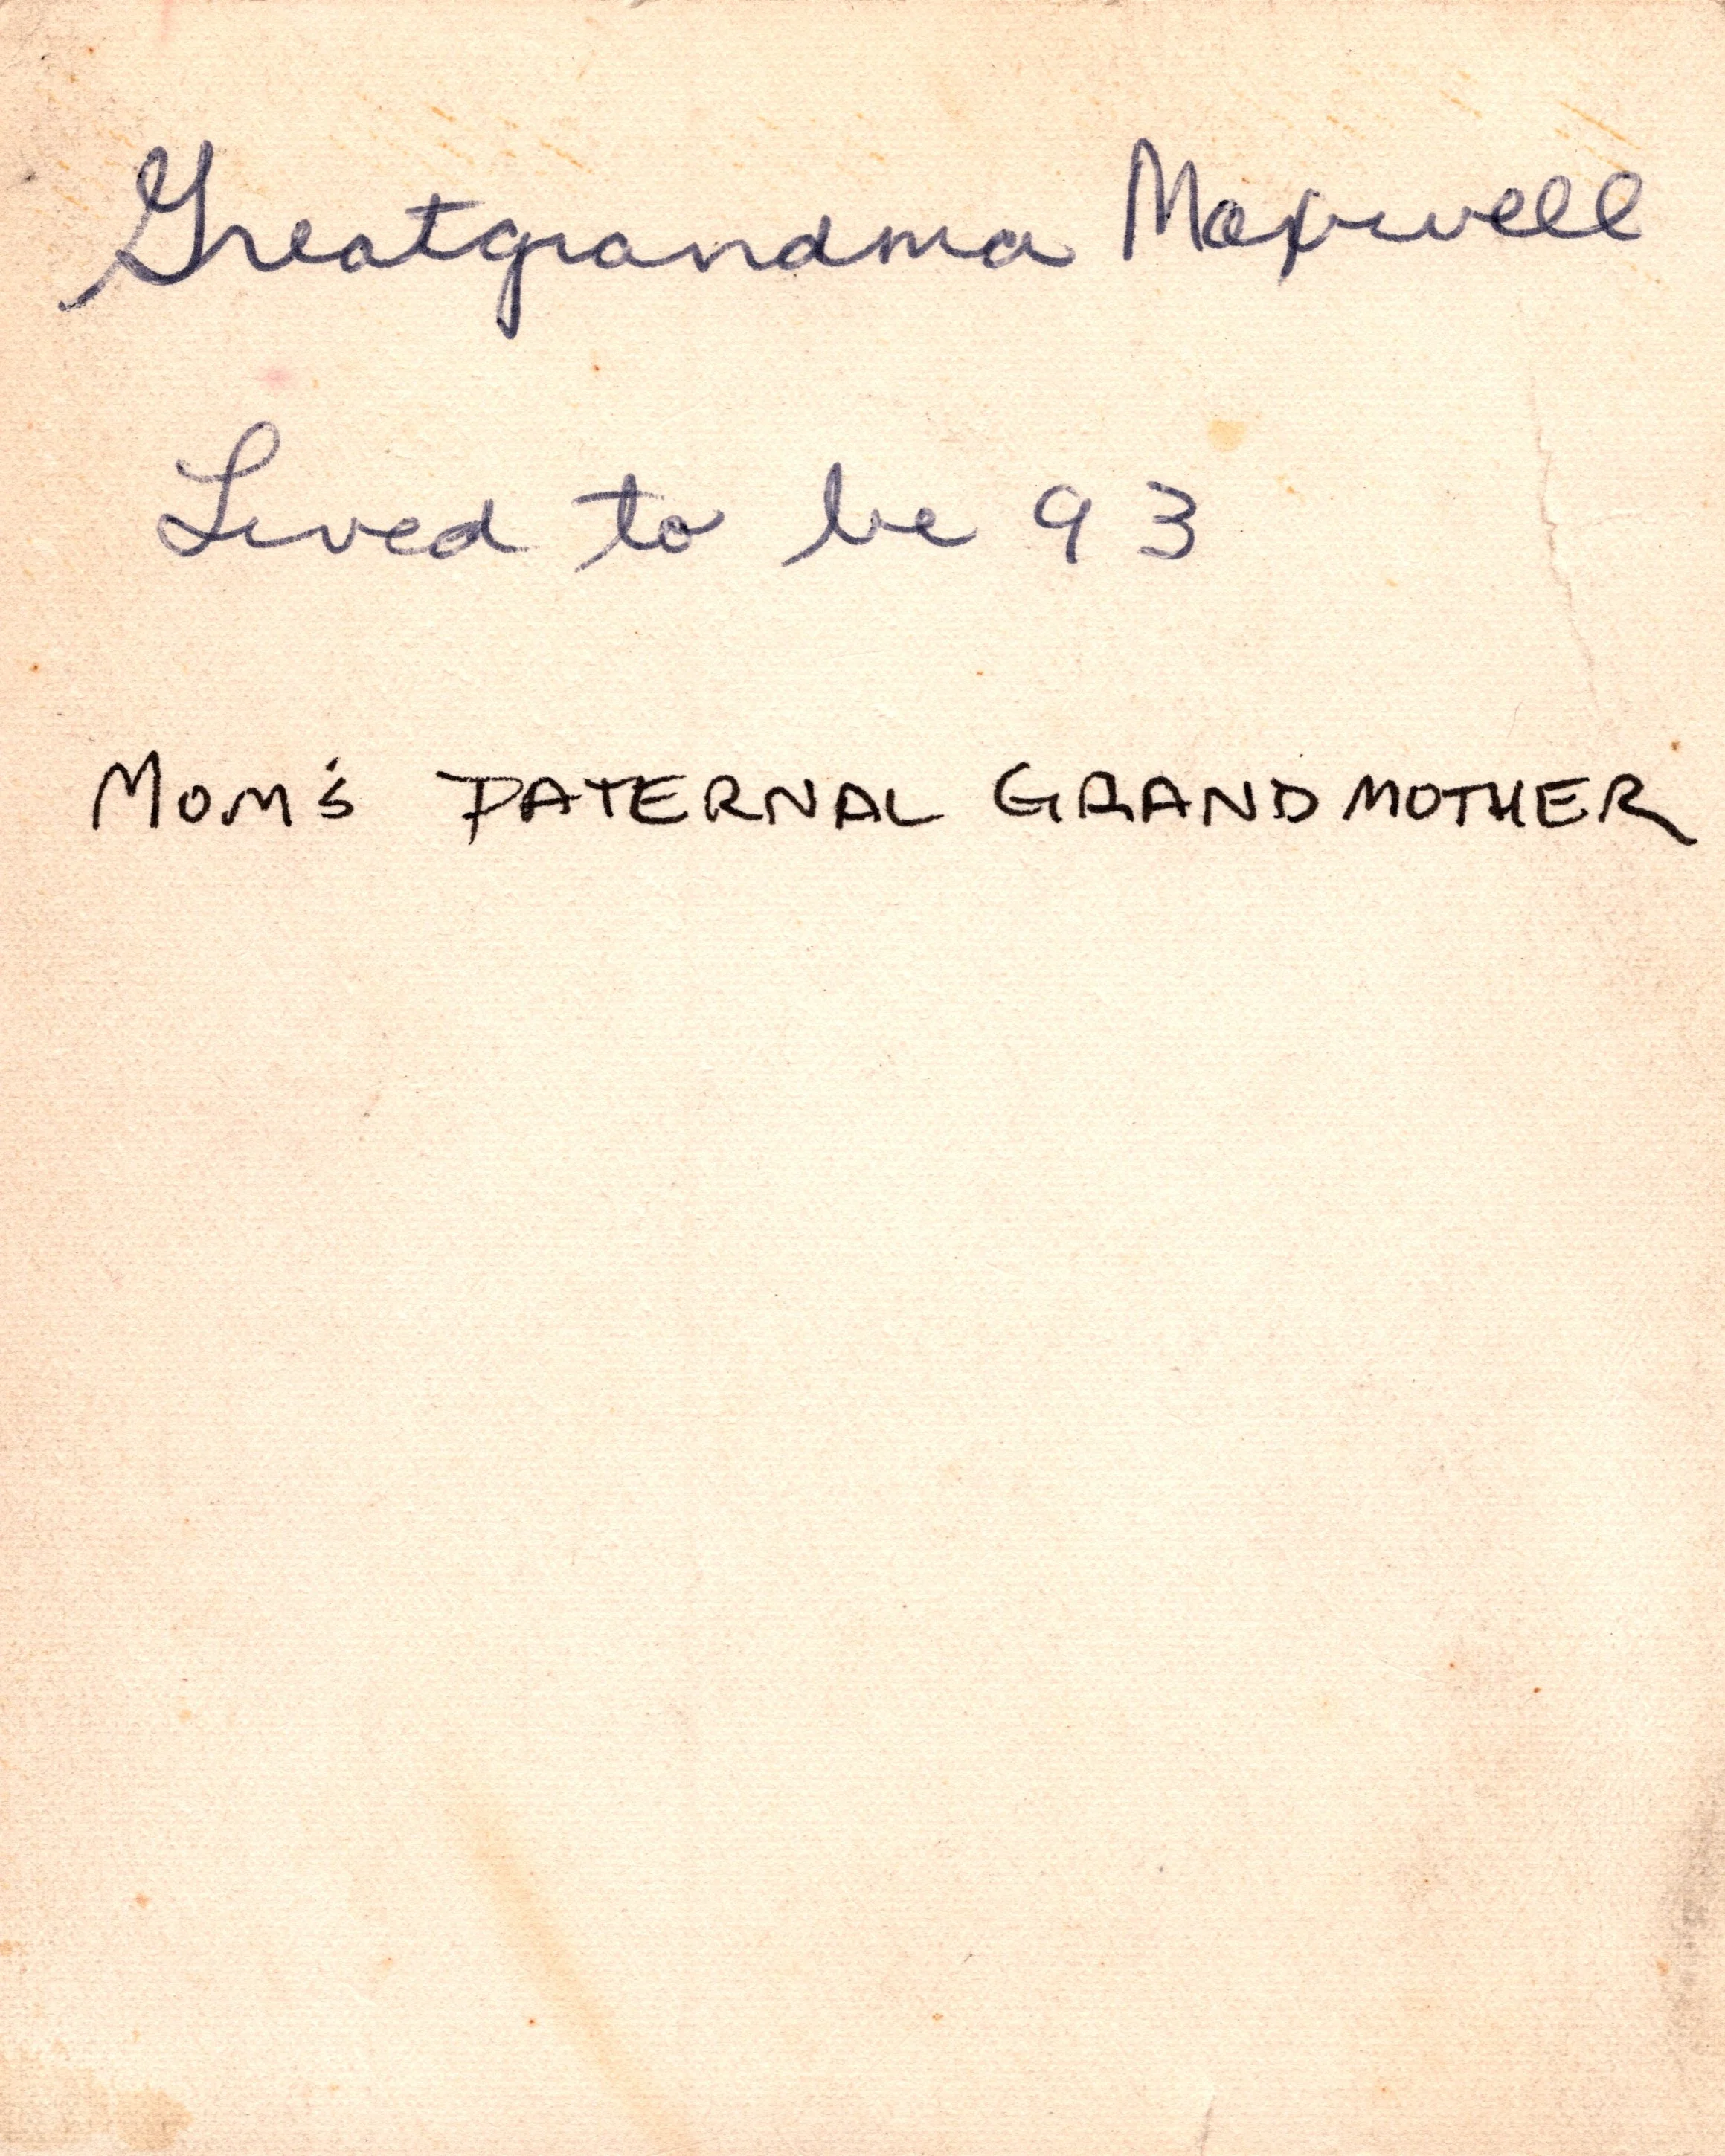 Greatgrandma Maxwell
Lived to be 93
MOM'S PATERNAL GRANDMOTHER